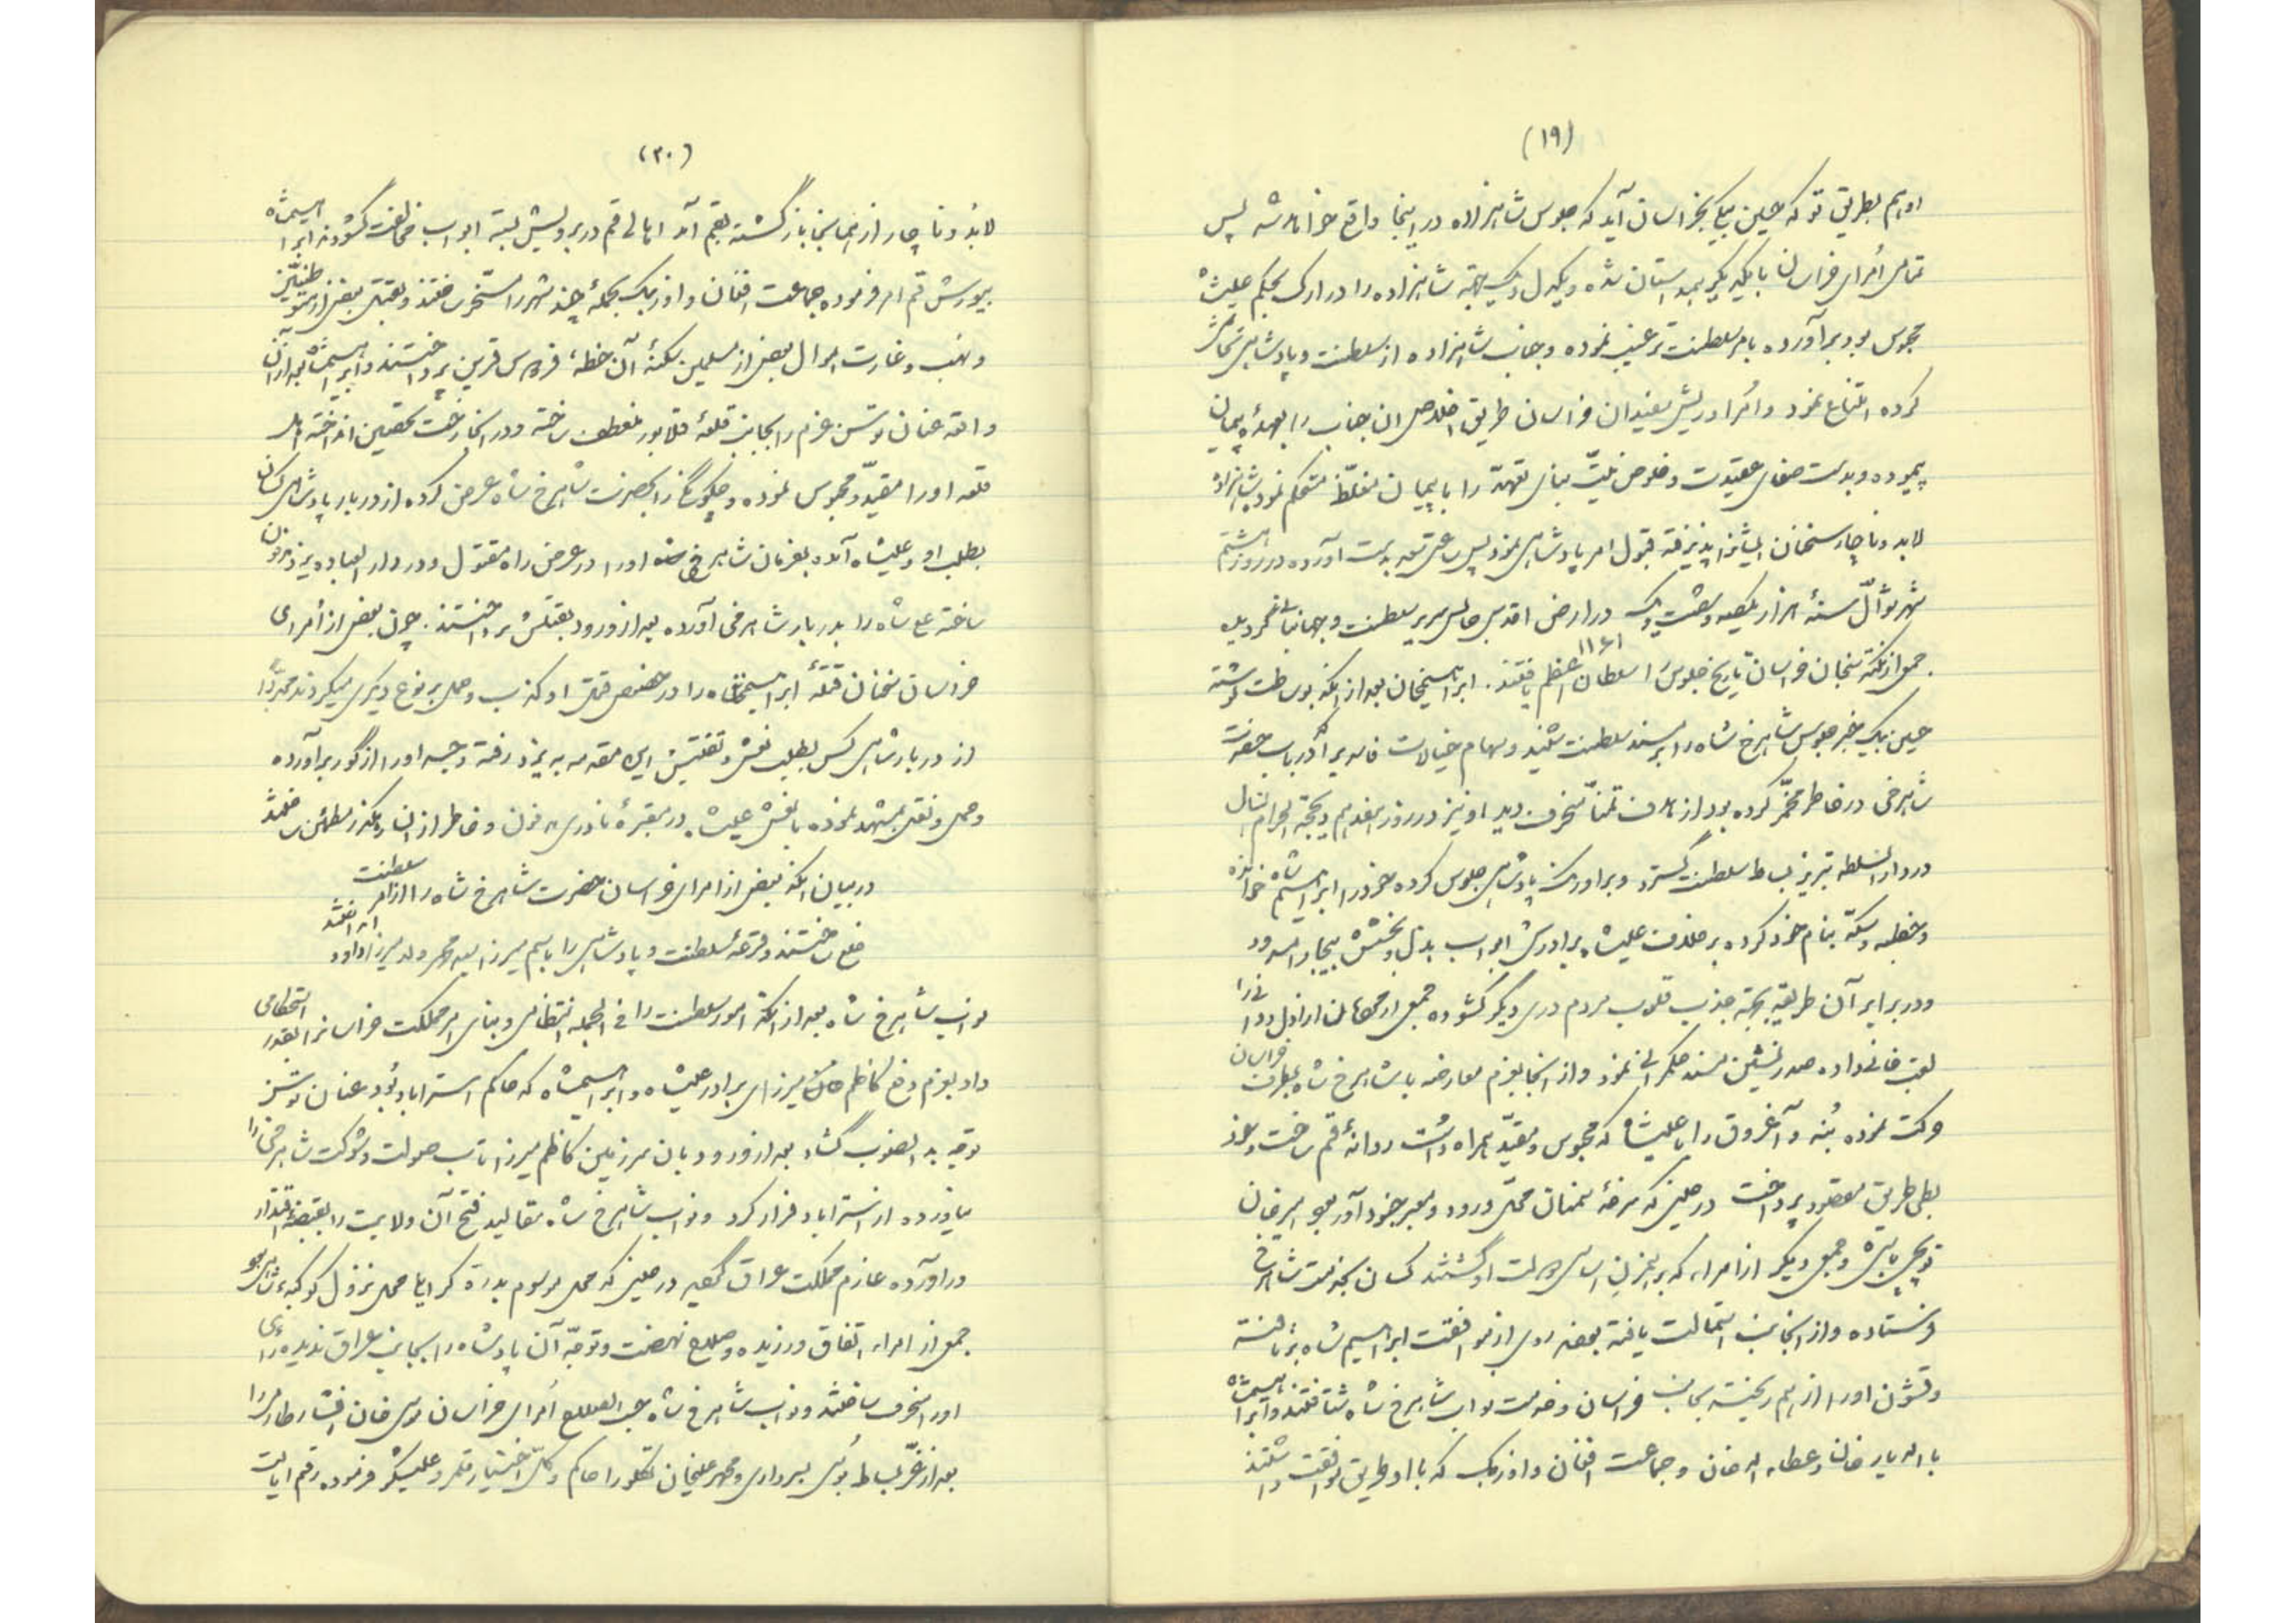 (۱۹)
او هم بطریق تو که حسین بیکی بخراسان آید که جلوس شاهزاده در اینجا واقع خواهد شد پس
تمامی اُمرای خراسان با یکدیگر همداستان شده و یکدل و یکجهة شاهزاده را در ارک بحکم علیشاه
محبوس بود برآورده بامر سلطنت ترغیب نموده و جناب شاهزاده از سلطنت و پادشاهی تحاشی
کرده امتناع نمود و اُمرا و ریش سفیدان خراسان طریق اخلاص ان جناب را بعهد و پیمان
پیموده و بدست صفای عقیدت و خلوص نیّت بنای تعهّد را با پیمان مغلّظ مستحکم نمود شاهزاده
لابد و ناچار سخنان ایشانرا پذیرفته قبول امر پادشاهی نمود پس ساعتی سعد بدست آورده در روز هشتم
شهر شوّال سنۀ هزار یکصد و شصت و یک در ارض اقدس جالس سریر سلطنت و جهانبانی گردید
۱۱۶۱
جمعی از نکته سنجان خراسان تاریخ جلوس را سلطان اعظم یافتند. ابراهیمخان بعد از انکه بوساطت نوشته
حسین بیک خبر جلوس شاهرخ شاه را بر مسند سلطنت شنید و سهام خیالات فاسد برا که در باب حضرت
شاهرخی در خاطر مخمّر کرده بود از هدف تمنّا منحرف دید او نیز در روز هفدهم ذیحجّة الحرام انسال
در دار السّلطنه تبریز بساط سلطنت گسترد و بر اورنک پادشاهی جلوس کرده خود را ابراهیم شاه خوانده
و خطبه و سکّه بنام خود کرده بر خلاف علیشاه برادرش ابواب بذل و بخشش بیجا را مسدود
و در برابر آن طریقه بجهة جذب قلوب مردم دری دیگر گشوده جمعی از محمّالان اراذل و دانی را
لقب خانی داده صدر نشین مسند حکمرانی نمود و از انجا بعزم معارضه با شاهرخ شاه بطرف خراسان
حرکت نموده بُنه و آغروق را با علیشاه که محبوس و مقیّد همراه داشت روانۀ قم ساخت و خود
بطی طریق مقصود پرداخت در حینی که سرخۀ سمنان محلّ ورود و معبر جنود آورد امیر خان
توپچی باشی و جمعی دیگر از امراء که برهمزن اساس دولت او گشتند کسان بخدمت شاهرخی
فرستاده و از انجانب استمالت یافته بعضی روی از موافقت ابراهیم شاه برتافته
و قشون او را از هم ریخته بجانب خراسان و خدمت نواب شاهرخ شاه شتافتند و ابراهیمشاه
با اله یار خان و عطاء اله خان و جماعت افغان و اوزبک که با او طریق موافقت داشتند
(۲۰)
لابدّ و ناچار از همانجا بازگشته بقم آمد اهالی قم در برویش بسته ابواب مخالفت گشودند ابراهیمشاه
بیورش قم امر فرموده جماعت افغان و اوزبک بحملۀ چند شهر را مسخّر ساختند و بقتل بعضی از متوطنین
و نهب و غارت اموال بعضی از مسلمین سکنۀ آن خطۀ فردوس قرین پرداختند و ابراهیمشاه بعد از آن
واقعه عنان توسن عزم را بجانب قلعۀ قلاپور منعطف ساخته و در انجا رخت تحصّن انداخته اهل
قلعه او را مقیّد و محبوس نموده و چگونگی را بحضرت شاهرخ شاه عرض کرده از دربار پادشاهی کسان
بطلب او و علیشاه آمده بفرمان شاهرخ شاه او را در عرض راه مقتول و در دار العباده یزد مدفون
ساخته علی شاه را بدربار شاهرخی آورده بعد از ورود بقتلش پرداختند. چون بعضی از اُمرای
خراسان سخنان قتلۀ ابراهیمشاه را در خصوص قتل او کذب و حمل بر نوع دیگری میکردند مجدّدا
از دربار شاهی کس بطلب نعش و تفتیش این مقدمه به یزد رفته و جسد او را از گور برآورده
و حمل و نقل بمشهد نموده با نعش علیشاه در مقبرۀ نادری مدفون و خاطر از انرهگذر مطمئن ساختند
در بیان انکه بعضی از امرای خراسان حضرت شاهرخ شاه را از امر سلطنت
خلع ساختند و قرعۀ سلطنت و پادشاهی را باسم میرزا سید محمد ولد میرزا داود انداختند
نواب شاهرخ شاه بعد از انکه امور سلطنت را فی الجمله انتظامی و بنای امر مملکت خراسانرا بقدر استحکامی
داد بعزم دفع کاظم خان میرزای برادر علیشاه و ابراهیمشاه که حاکم استراباد بُود عنان توسن
توجّه بدالصوب گشاد بعد از ورود بان سرزمین کاظم میرزا تاب صولت و شوکت شاهرخی را
نیاورده از استراباد فرار کرد و نواب شاهرخ شاه مقالید فتح آن ولایت را بقبضۀ اقتدار
در اورده عازم مملکت عراق گردید در حینی که محل موسوم بدرۀ کرایلی محل نزول کوکبۀ شاهی بود
جمعی از امراء اتفاق ورزیده و صلاح نهضت و توجّه آن پادشاه را بجانب عراق ندیده رأی
او را منحرف ساختند و نواب شاهرخ شاه حسب الصلاح اُمرای خراسان موسی خان افشار طارمی را
بعد از عزّ بساط بوسی بسرداری و محمد علیخان تکلو را حاکم و کلّ اختیار قلمرو علیشکر فرموده رقم ایالت